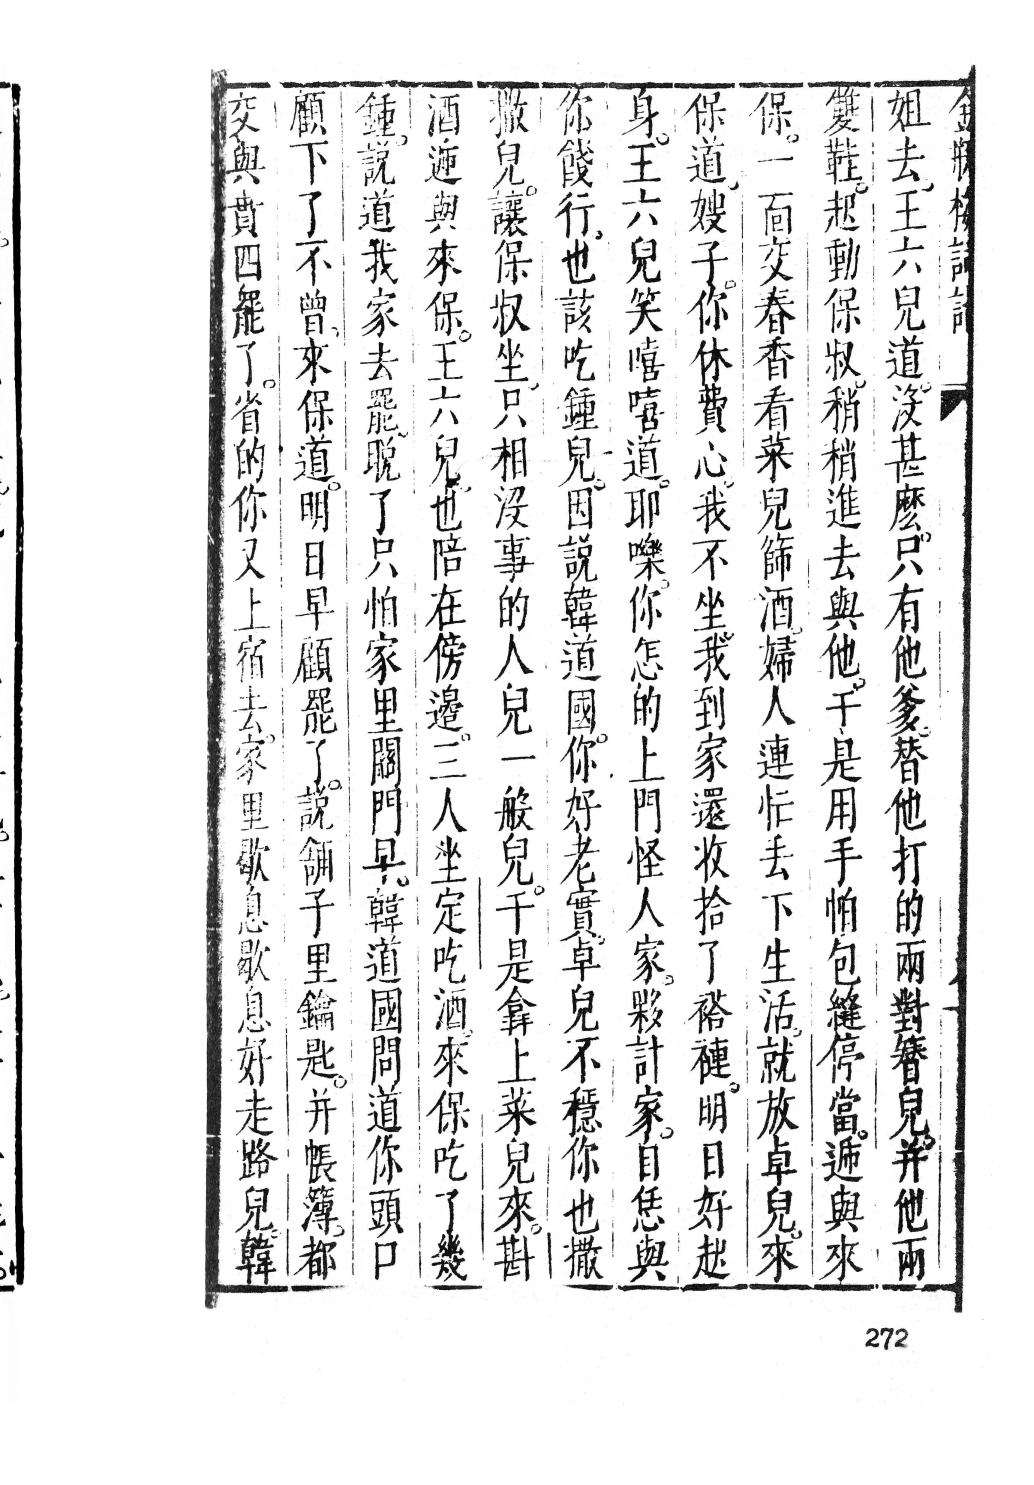 金瓶梅詞話
姐去。王六兒道。沒甚麽。只有他爹。替他打的兩對簪兒。并他兩
雙鞋。起動保叔。稍稍進去與他。于是用手帕包縫停當。遞與來
保。一面交春香看菜兒篩酒。婦人連忙丢下生活。就放卓兒。來
保道。嫂子。你休費心。我不坐。我到家還收拾了褡褳。明日好起
身。王六兒笑嘻嘻道。耶嚛。你怎的上門怪人家。夥計家。自恁與
你餞行。也該吃鍾兒。因説韓道國。你好老實。卓兒不穩你也撒
撒兒。讓保叔坐。只相沒事的人兒一般兒。于是拿上菜兒來。斟
酒遞與來保。王六兒。也陪在傍邉。三人坐定吃酒。來保吃了幾
鍾。説道我家去罷。晩了只怕家里關門早。韓道國問道你頭口
顧下了不曾。來保道。明日早顧罷了。説舖子里鑰匙。并帳簿。都
交與賁四罷了。省的你又上宿去。家里歇息歇息好走路兒。韓
272